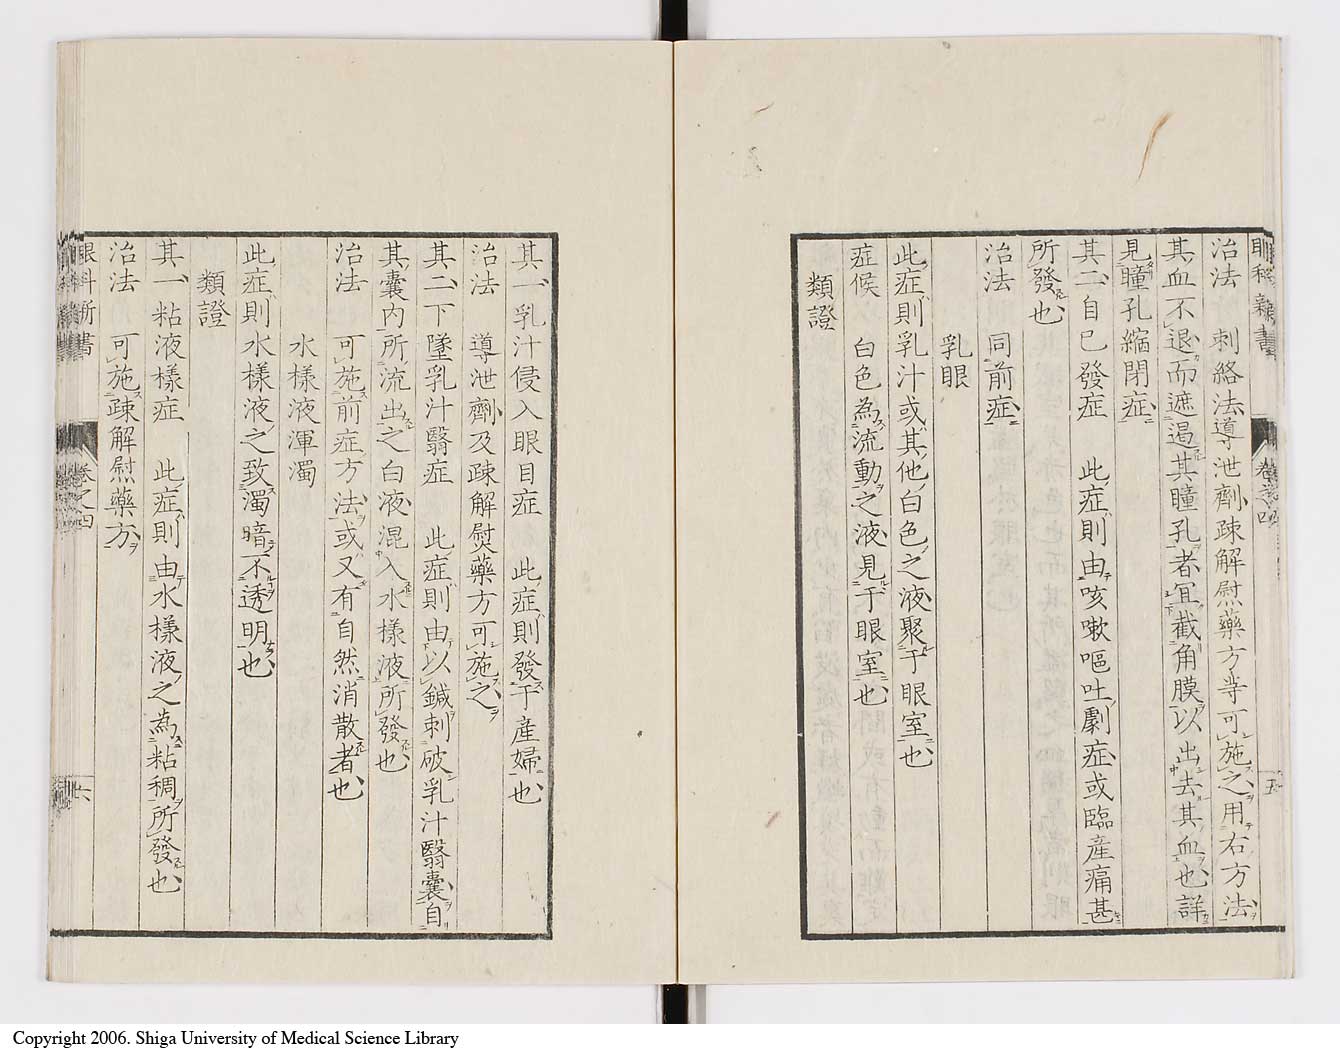 治法　刺絡法導泄劑疎解熨藥方等可施之用右方法
其血不退而遮遏其瞳孔者宜截角膜以出去其血也詳
見瞳孔縮閉症
其二自已發症　此症則由咳嗽嘔吐劇症或臨產痛甚
所發也
治法　同前症
乳眼
此症則乳汁或其他白色之液聚于眼室也
症候　白色為流動之液見于眼室也
類證
五
其一乳汁侵入眼目症　此症則發于產婦也
治法　導泄劑及疎解熨藥方可施之
其二下墜乳汁翳症　此症則由以鍼刺破乳汁翳囊自
其囊内所流出之白液混入水樣液所發也
治法　可施前症方法或又有自然消散者也
水樣液渾濁
此症則水樣液之致濁暗不透明也
類證
其一粘液樣症　此症則由水樣液之為粘稠所發也
治法　可施疎解熨藥方
眼科新書
卷之四
六
Copyright 2006. Shiga University of Medical Science Library